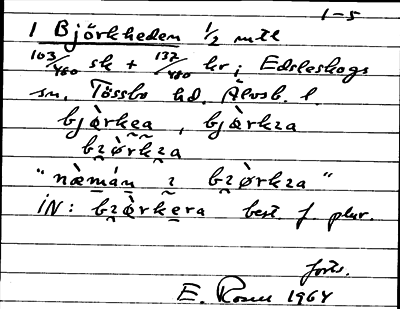 1-5
1 Björkheden 1/2 mtl
103/480 sk + 137/480 kr i Edsleskogs
sn, Tössbo hd. Älvsb. l.
bjø̀rkea, bjø̀rkza
bzø̀rkza
"næ̀mán z bzø̀rkza"
iN: bzø̀rkera best. f. plur.
forts.
E. Rosen 1964